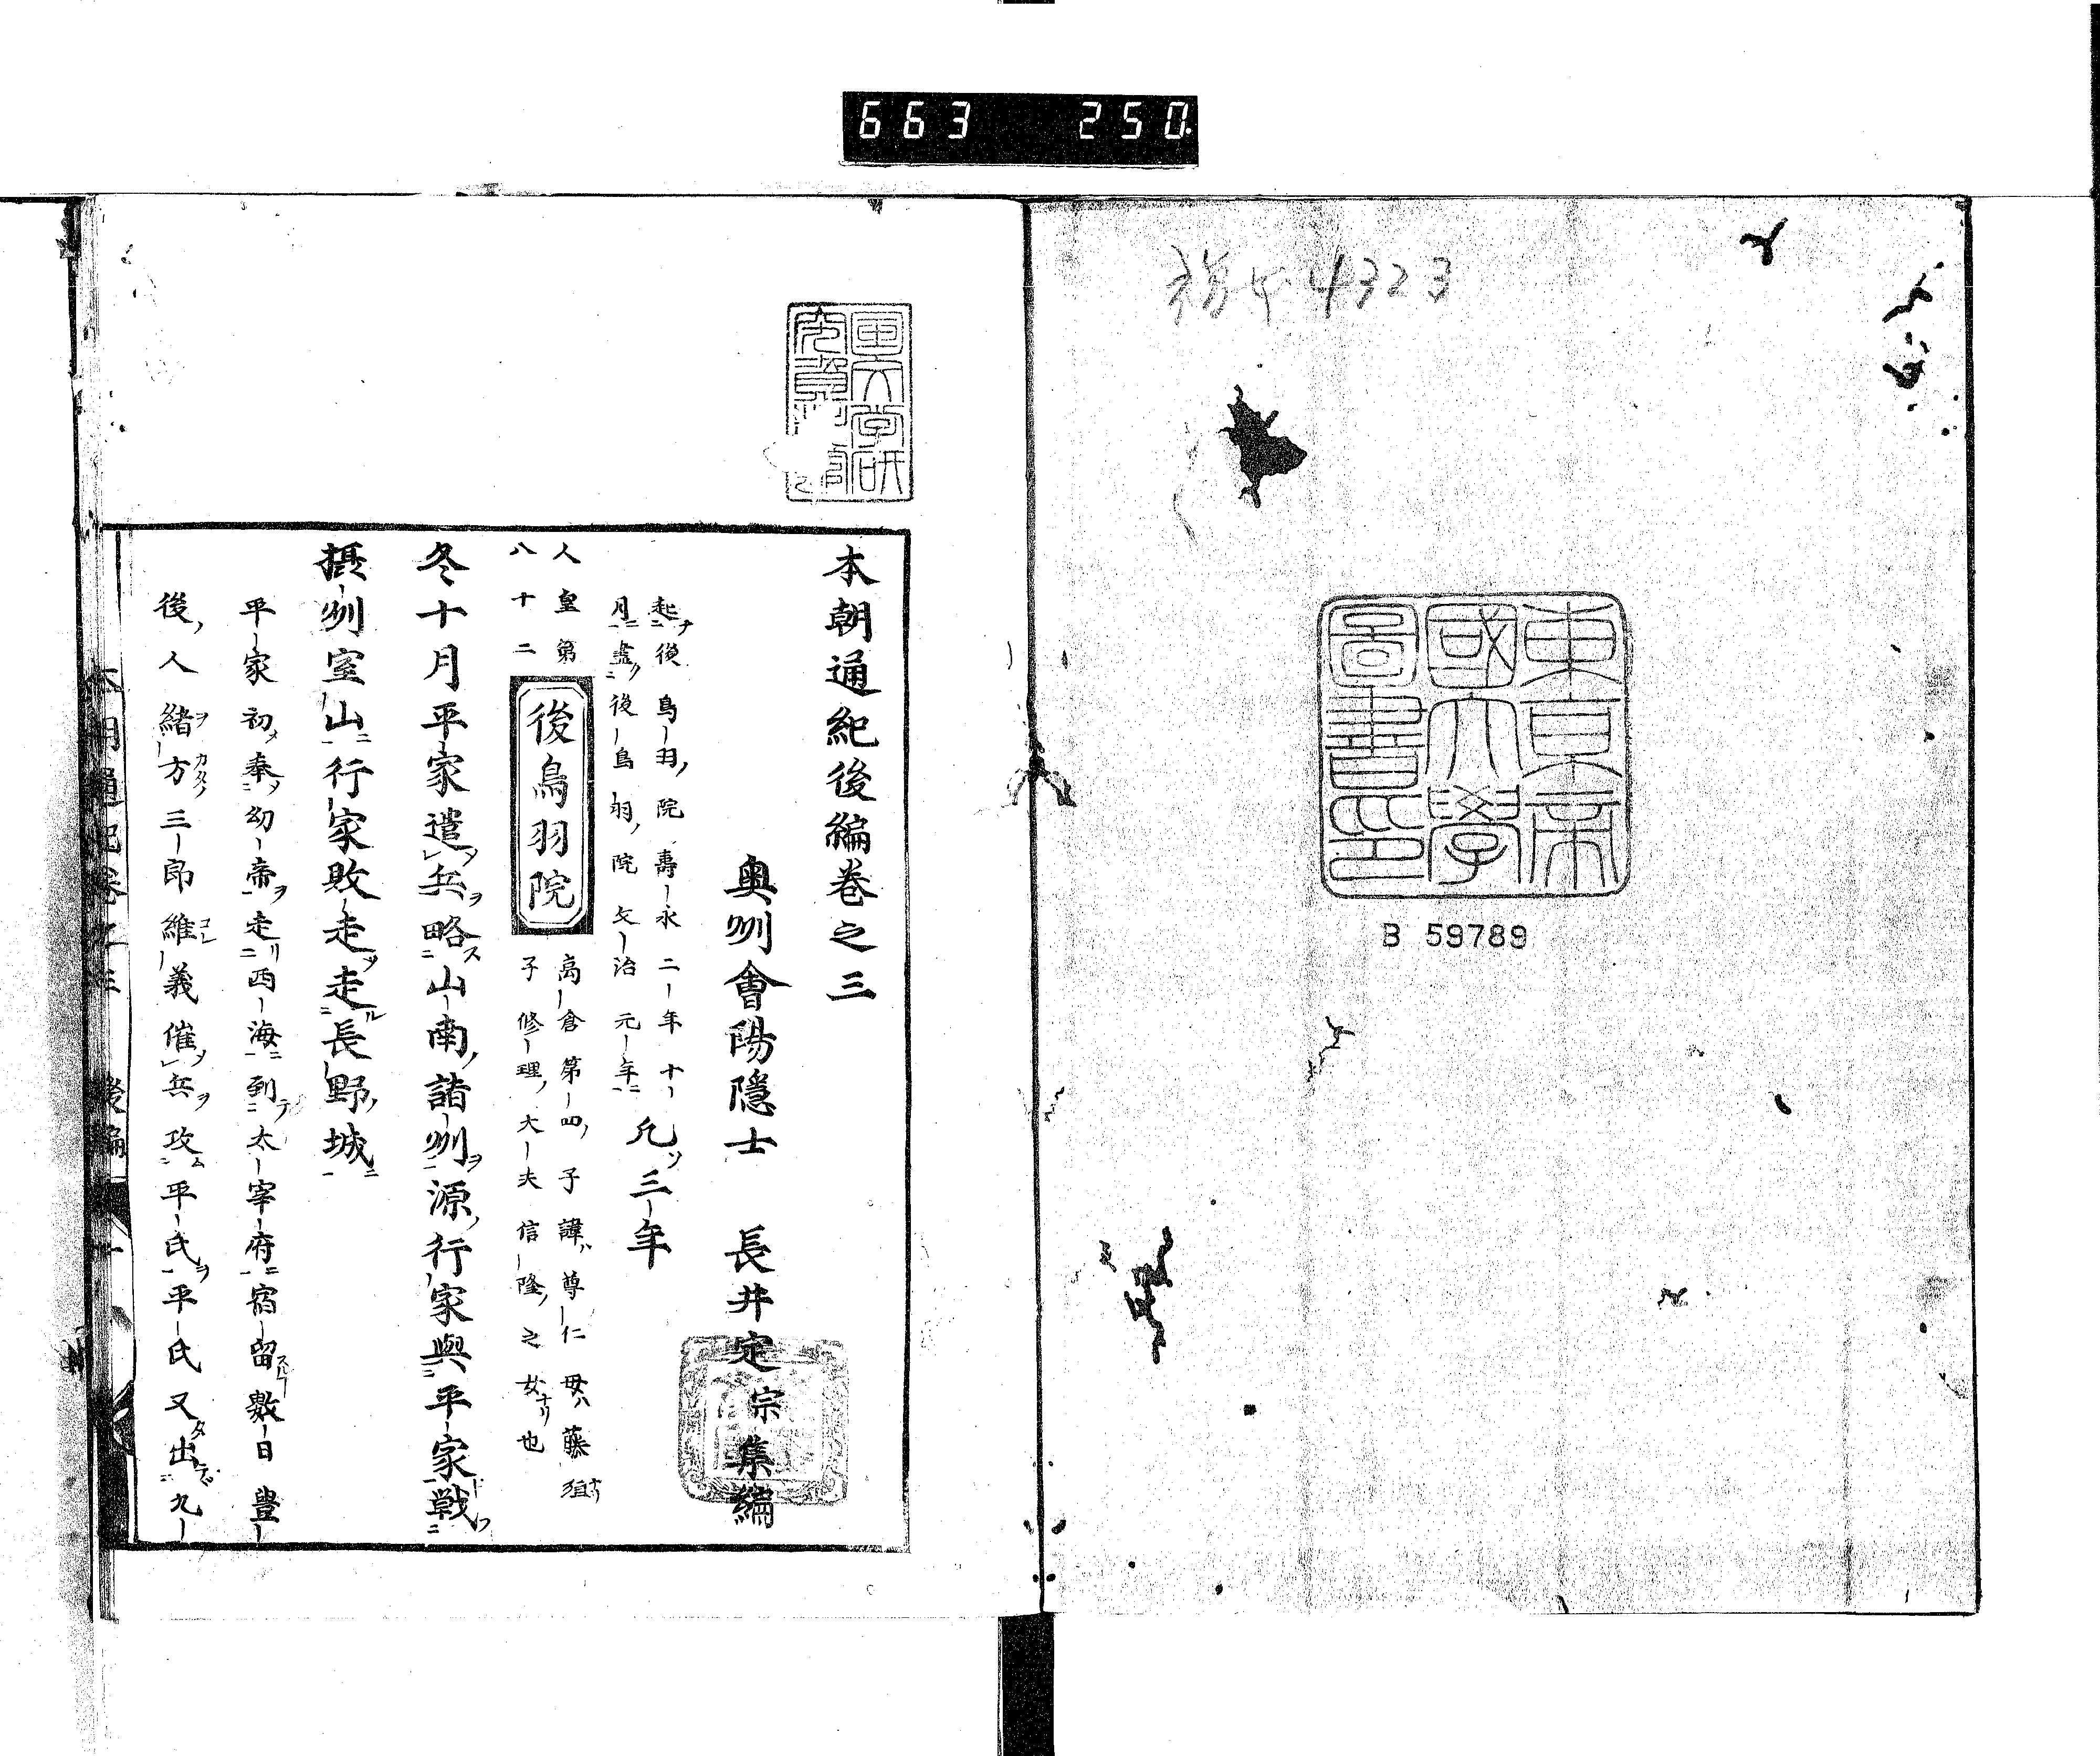 663 250.
4323
東京帝
國大學
圖書印
B 59789
本朝通紀後編巻之三
奥州會陽隱士 長井定宗集編
起後鳥羽院壽永二年十
月盡後鳥羽院文治元年
凡三年
人皇第
八十二
後鳥羽院
高倉第四子諱尊仁母藤殖
子修理大夫信隆之女也
冬十月平家遣兵略山南諸州源行家與平家戦
摂州室山行家敗走走長野城
平家初奉幼帝走西海到太宰府宿留數日豊
後人緒方三郎維義催兵攻平氏平氏又出九